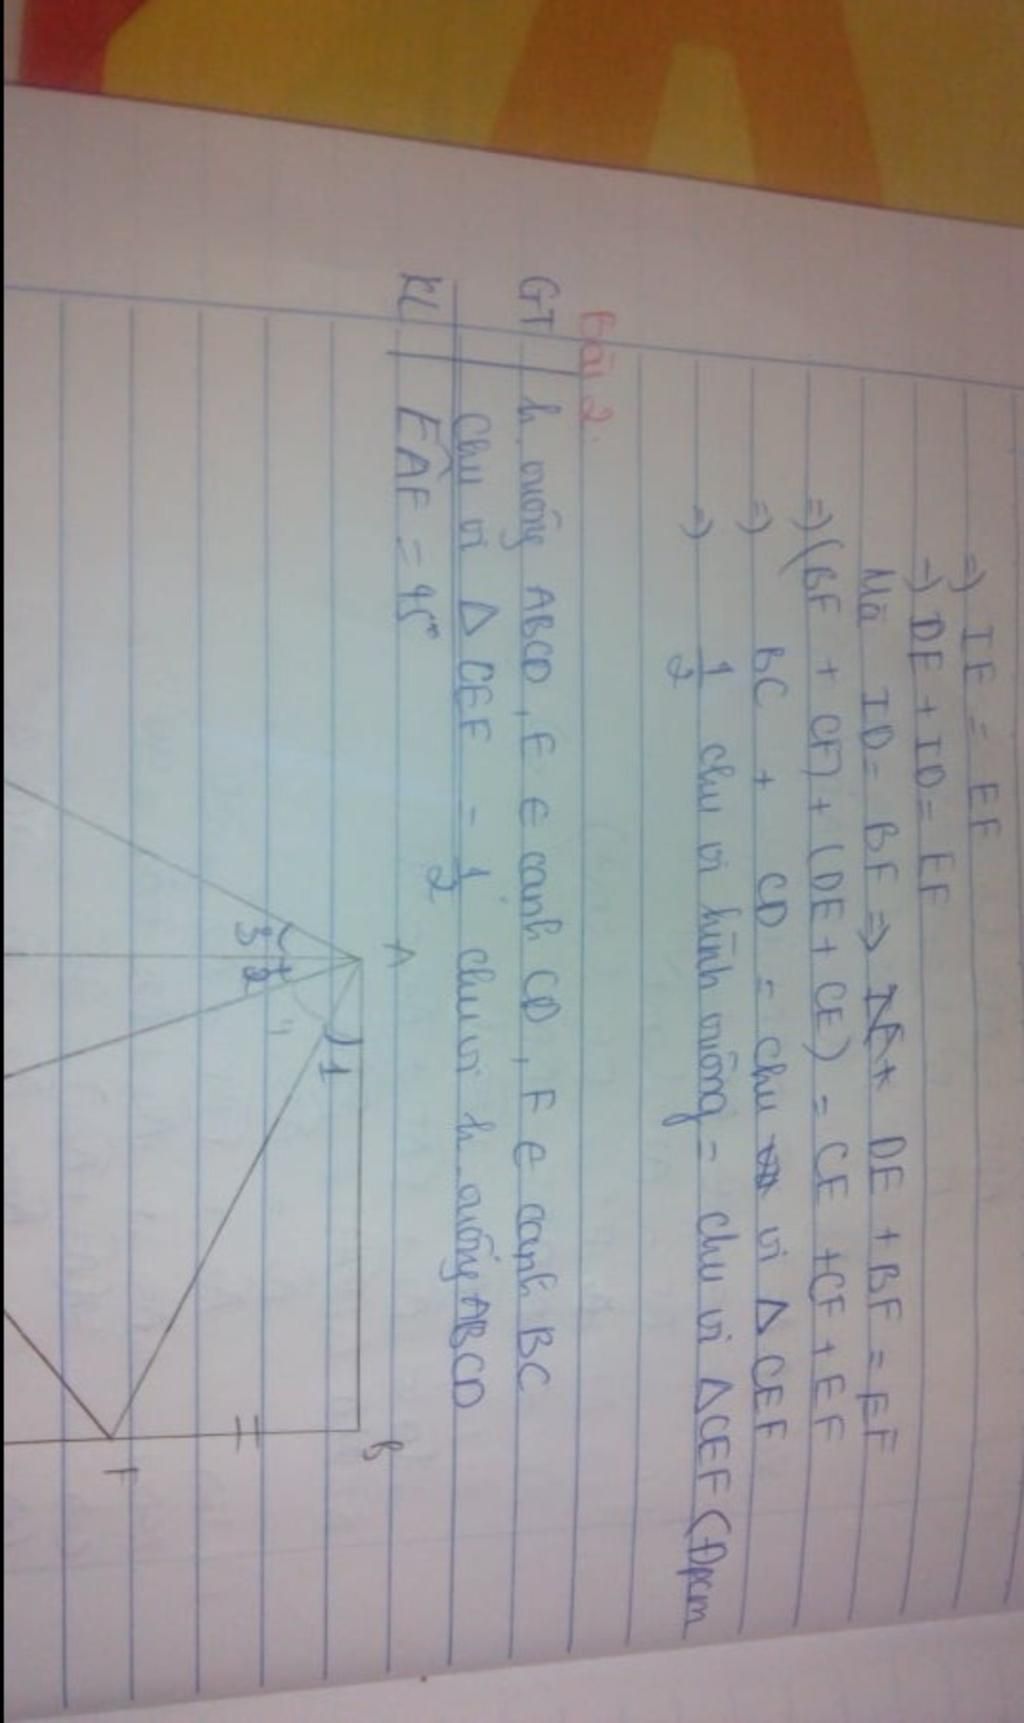 =) IE = EF
=) DE + ID = EF
Mà ID = BF => DE + BF = EF
=) (BF + CF) + (DE + CE) = CE + CF + EF
=) BC + CD = chu vi Δ CEF
=) 1/2 chu vi hình vuông = chu vi ΔCEF (Đpcm
Bài 2.
GT h. vuông ABCD, E ∈ cạnh CD, F ∈ cạnh BC
chu vi Δ CEF = 1/2 chu vi h. vuông ABCD
KL EÂF = 45°
A
B
1
2
3
F